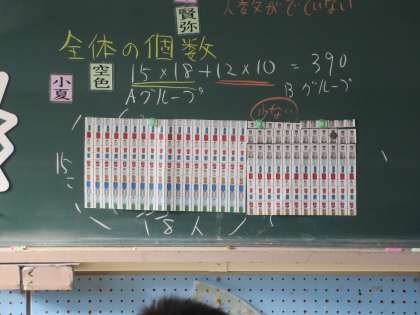 人数がでていない
賢弥
全体の個数
空色
小夏
15×18+12×10=390
Aグループ
Bグループ
少ない
15
18人